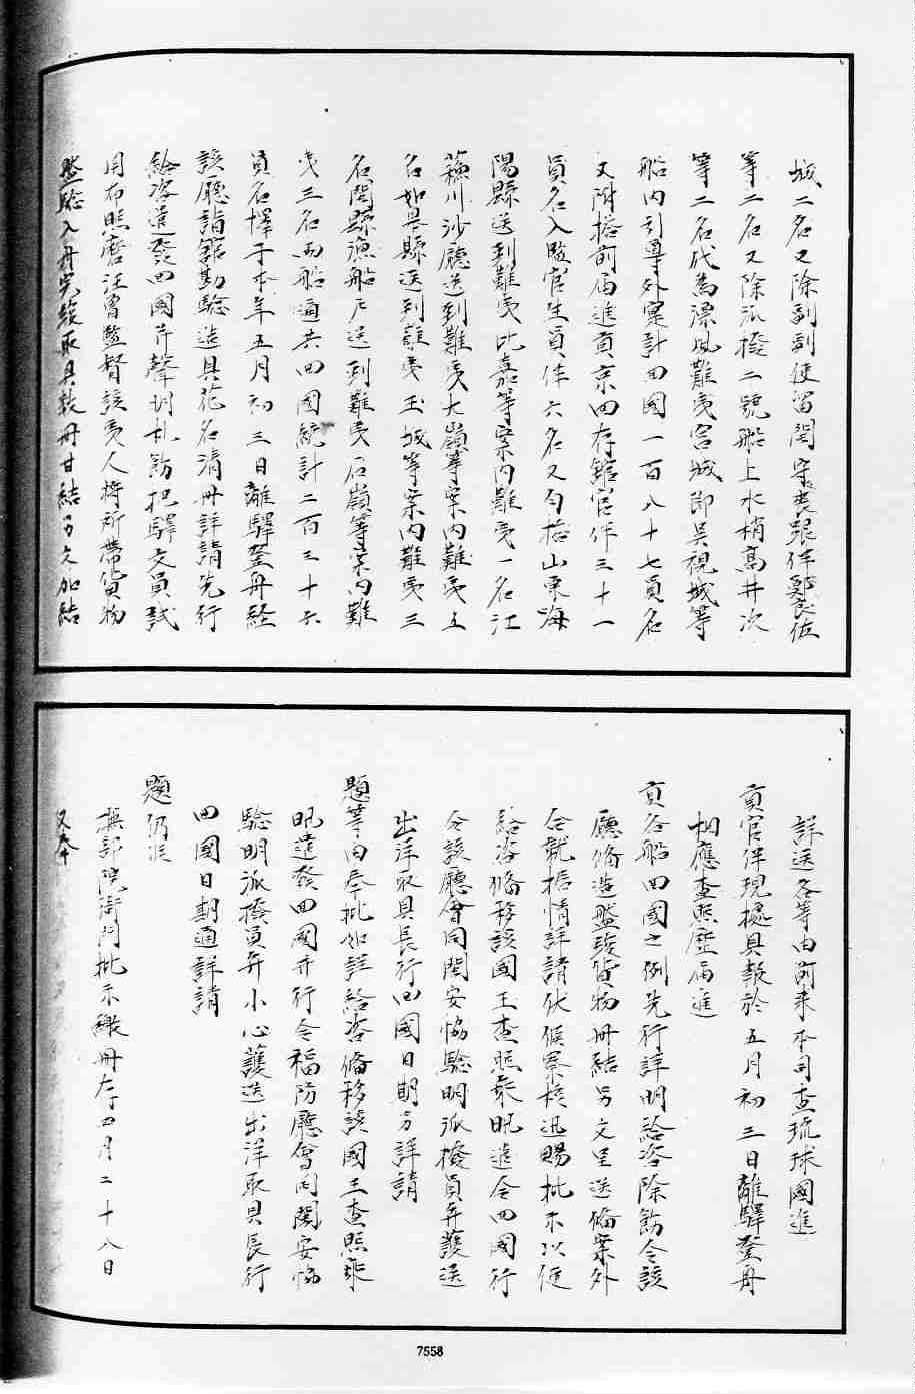 城二名又除副使留閩宗喪跟伴鄭良佐
等二名又除派撥二號船上水梢高井次
等二名代為漂風難夷宮城即吳視城等
船內引導外寔計回國一百八十七員名
又附搭前屆進貢京回存館官伴三十一
員名入監官生員伴六名又勻搭山東海
陽縣送到難夷比嘉等案內難夷一名江
蘇川沙廳送到難夷大嶺等案內難夷五
名如皋縣送到難夷玉城等案內難夷三
名閩縣漁船戶送到難夷石嶺等案內難
夷三名兩船通共回國統計二百三十六
員名擇于本年五月初三日離驛登舟経
該廳詣館勘驗造具花名清冊詳請先行
給咨遣發回國并聲明札飭把驛文員試
用布照磨汪曾監督該夷人將所帶貨物
盤驗入舟完竣取具 冊甘結另文加結
詳送各等由前來本司查琉球國進
貢官伴現據具報於五月初三日離驛登舟
相應查照歷屆進
貢各船回國之例先行詳明給咨除飭令該
廳俻造盤驗貨物冊結另文呈送俻案外
合就據情詳請伏候察核迅賜批示以便
給咨俻移該國王查照乘汛遣令回國行
令該廳會同閩安協驗明派撥員弁護送
出洋取具長行回國日期另詳請
題等由奉批如詳給咨俻移該國王查照乘
汛遣發回國并行令福防廳會同閩安協
驗明派撥員弁小心護送出洋取具長行
回國日期通詳請
題仍候
撫部院衙門批示繳冊存四月二十八日
又奉
7558